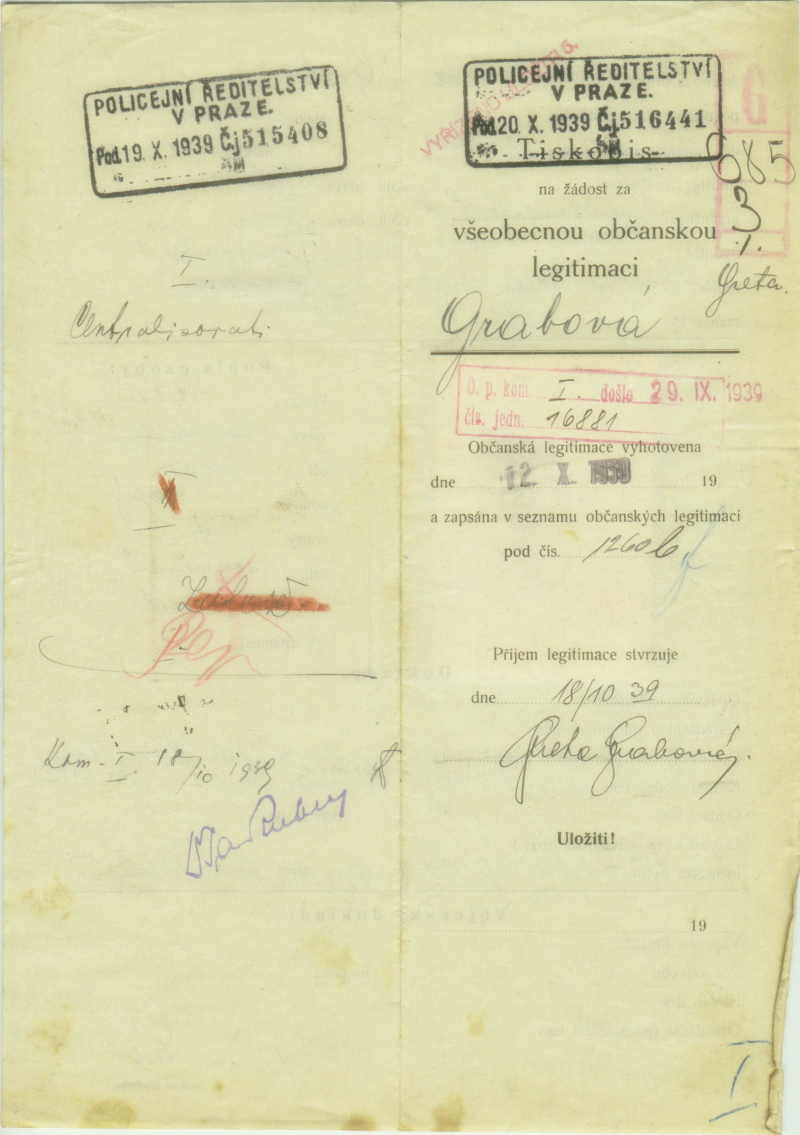 POLICEJNÍ ŘEDITELSTVÍ
V PRAZE.
Pod. 19. X. 1939 Čj 515408
I.
Centralisovati
I
Kom. I. 18/10 1939
POLICEJNÍ ŘEDITELSTVÍ
V PRAZE.
Pod. 20. X. 1939 Čj 516441
G
Tiskopis
685
3
1.
na žádost za
všeobecnou občanskou
legitimaci
Greta.
Grabová
O. p. kom. I. došlo 29. IX. 1939
čís. jedn. 16881
Občanská legitimace vyhotovena
dne 12. X. 1939 19
a zapsána v seznamu občanských legitimací
pod čís. 1260b
Příjem legitimace stvrzuje
dne 18/10 39
Greta Grabová.
Uložiti!
19
I